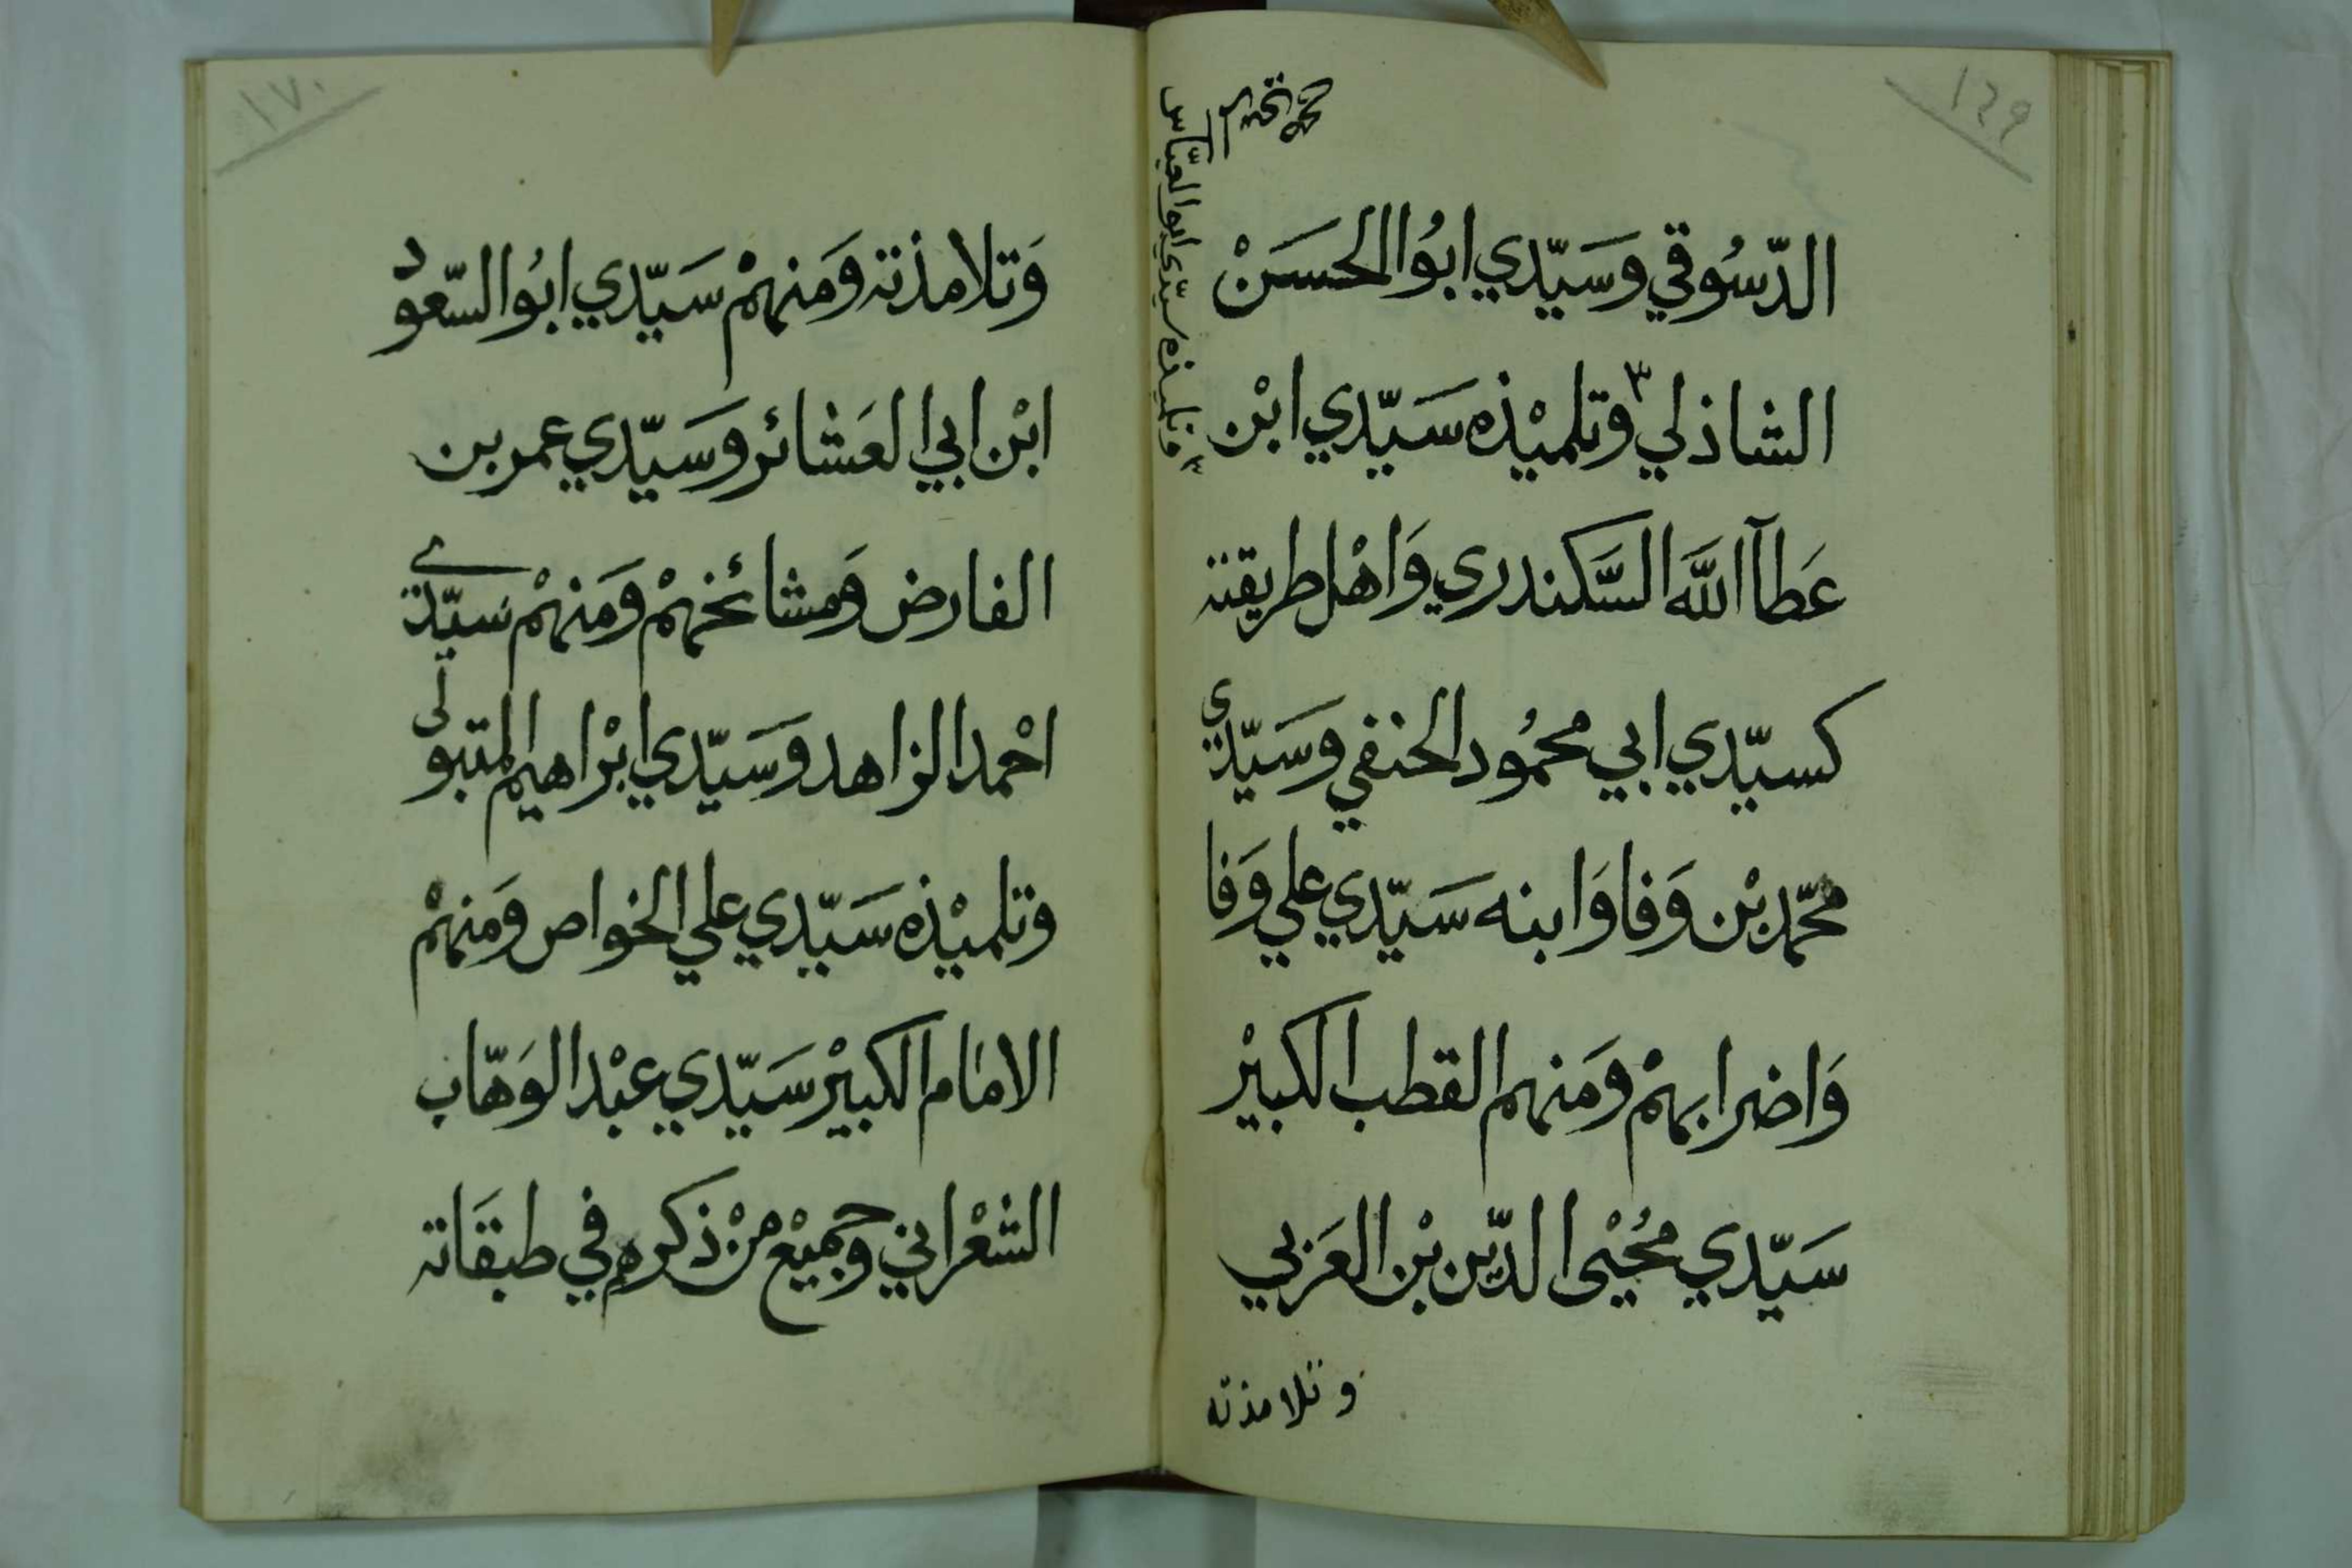 ١٦٩
الدّسُوقي وسَيّدي ابُو الحسَنْ
الشاذلي ٣ وتلميْذه سَيّدي ابْن
٣ وتلميذه سيّدي ابو العبّاس
عَطآ اللَّه السَّكندري وَاهْل طريقته
كسيّدي ابي محمُود الحنفي وسَيّدي
محمّد بْن وَفا وَابنه سَيّدي علي وَفا
وَاضرابهمْ ومَنهم القطب الكبيْر
سَيّدي مُحْيى الدّين بْن العَربي
وتلامذته
١٧٠
وَتلامذته ومَنهمْ سَيّدي ابُو السّعود
ابْن ابي العَشائر وسَيّدي عمر بن
الفارض وَمشائخهمْ ومَنهمْ سَيّدي
احْمد الزاهد وسَيّدي ابْراهيم المتبولى
وتلميْذه سَيّدي علي الخواص ومَنهمْ
الامام الكبيْر سَيّدي عبْد الوَهّاب
الشعْراني وجميْع منْ ذكرهم في طبقَاته